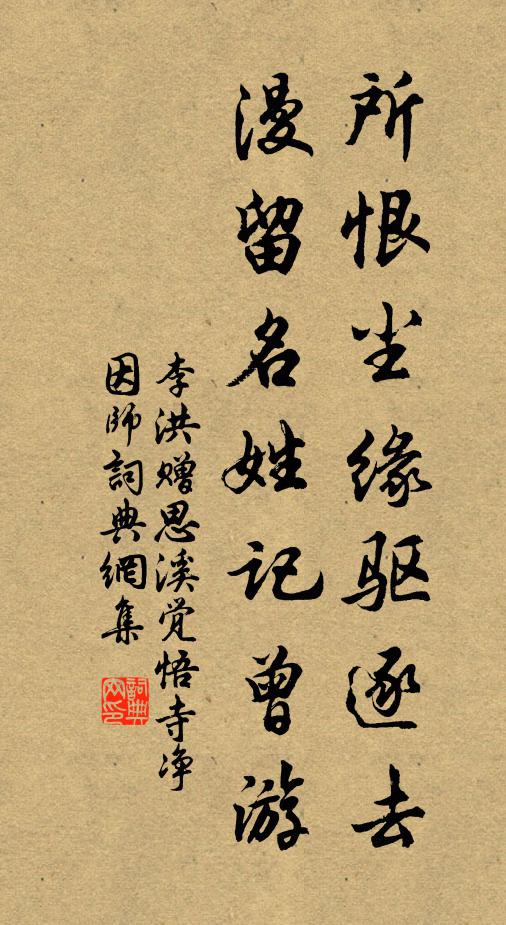 所恨尘缘驱逐去
漫留名姓记曾游
李洪赠思溪觉悟寺净
因师詞典網集
詞典网印